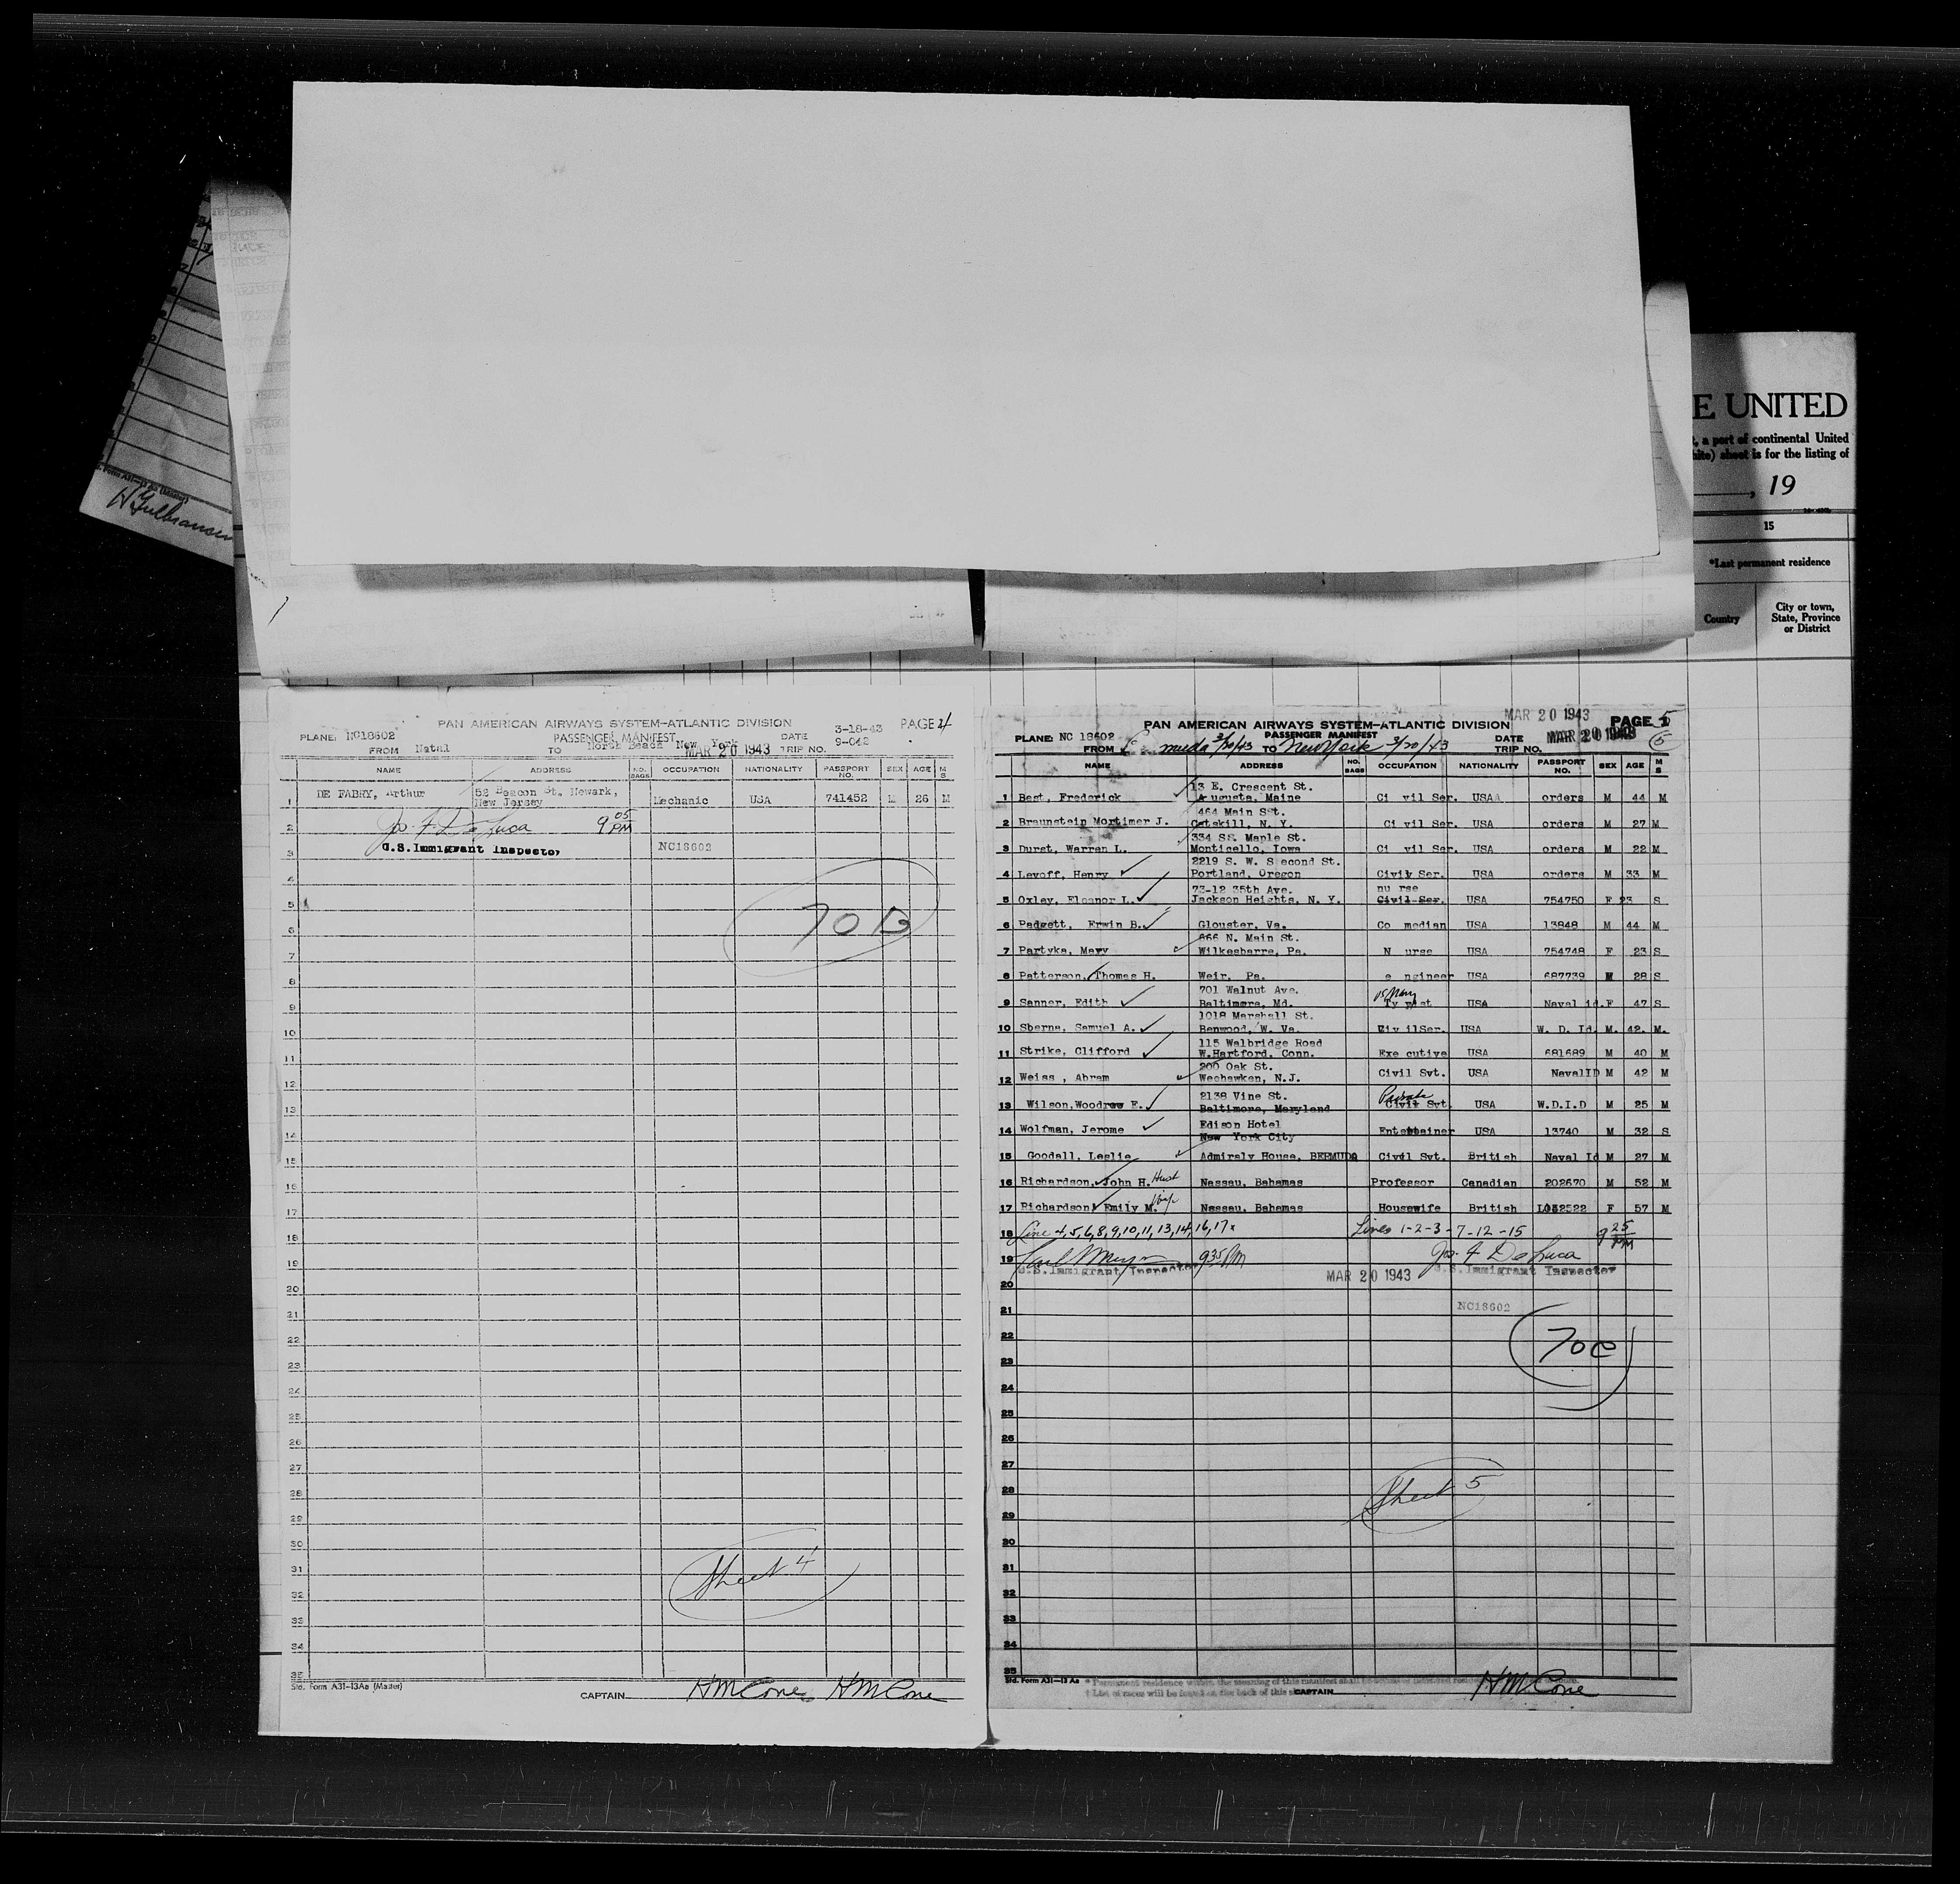 H Gulbransen
E UNITED
, a port of continental United
hite) sheet is for the listing of
, 19
15
*Last permanent residence
Country
City or town, State, Province or District
PAN AMERICAN AIRWAYS SYSTEM—ATLANTIC DIVISION
PASSENGER MANIFEST
PAGE 4
PLANE: NC18602
DATE 3-18-43
FROM Natal TO North Beach New York MAR 20 1943 TRIP NO. 9-042
NAME ADDRESS NO. BAGS OCCUPATION NATIONALITY PASSPORT NO. SEX AGE M S
1 DE FABRY, Arthur 52 Beacon St. Newark, New Jersey Mechanic USA 741452 M 26 M
2 Jos. F. De Luca 9 05 PM
3 U.S. Immigrant Inspector NC18602
4
5
6 70 B
7
8
9
10
11
12
13
14
15
16
17
18
19
20
21
22
23
24
25
26
27
28
29
30
31 Sheet 4
32
33
34
35
Std. Form A31-13Aa (Master)
CAPTAIN H M Cone H M Cone
MAR 20 1943
PAN AMERICAN AIRWAYS SYSTEM—ATLANTIC DIVISION
PASSENGER MANIFEST
PAGE 5
PLANE: NC 18602
DATE MAR 20 1943 5
FROM muda 3/20/43 TO New York 3/20/43 TRIP NO.
NAME ADDRESS NO. BAGS OCCUPATION NATIONALITY PASSPORT NO. SEX AGE M S
1 Best, Frederick 13 E. Crescent St. Augusta, Maine Ci vil Ser. USA orders M 44 M
2 Braunstein Mortimer J. 464 Main SSt. Catskill, N. Y. Ci vil Ser. USA orders M 27 M
3 Durst, Warren L. 334 SS. Maple St. Monticello, Iowa Ci vil Ser. USA orders M 22 M
4 Levoff, Henry 2219 S. W. S econd St. Portland, Oregon Civil Ser. USA orders M 33 M
5 Oxley, Eleanor L. 73-12 35th Ave. Jackson Heights, N. Y. nu rse Civil Ser. USA 754750 F 23 S
6 Padgett, Erwin B. Glouster, Va. Co median USA 13848 M 44 M
7 Partyka, Mary 666 N. Main St. Wilkesbarre, Pa. N urse USA 754748 F 23 S
8 Patterson, Thomas H. Weir, Pa. e ngineer USA 687739 M 28 S
9 Sanner, Edith 701 Walnut Ave. Baltimore, Md. US Navy Ty pist USA Naval id. F 47 S
10 Sberna, Samuel A. 1018 Marshall St. Benwood, W. Va. Civ ilSer. USA W. D. Id. M. 42. M.
11 Strike, Clifford 115 Walbridge Road W.Hartford, Conn. Exe cutive USA 681689 M 40 M
12 Weiss , Abram 200 Oak St. Weehawken, N.J. Civil Svt. USA NavalID M 42 M
13 Wilson,Woodrow E. 2138 Vine St. Baltimore, Maryland Private Civil Svt. USA W.D.I.D M 25 M
14 Wolfman, Jerome Edison Hotel New York City Entertainer USA 13740 M 32 S
15 Goodall, Leslie Admiraly House, BERMUDA Civil Svt. British Naval Id M 27 M
16 Richardson, John H. Husb Nassau, Bahamas Professor Canadian 202670 M 52 M
17 Richardson Emily M. Wife Nassau, Bahamas Housewife British L032522 F 57 M
18 Line 4,5,6,8,9,10,11,13,14,16,17 Lines 1-2-3-7-12-15 9 25 PM
19 935 PM Jos. F. De Luca
U.S. Immigrant Inspector MAR 20 1943 U.S. Immigrant Inspector
20
21 NC18602
22 70 C
23
24
25
26
27
28 Sheet 5
29
30
31
32
33
34
35
Std. Form A31-13 Aa
CAPTAIN H M Cone